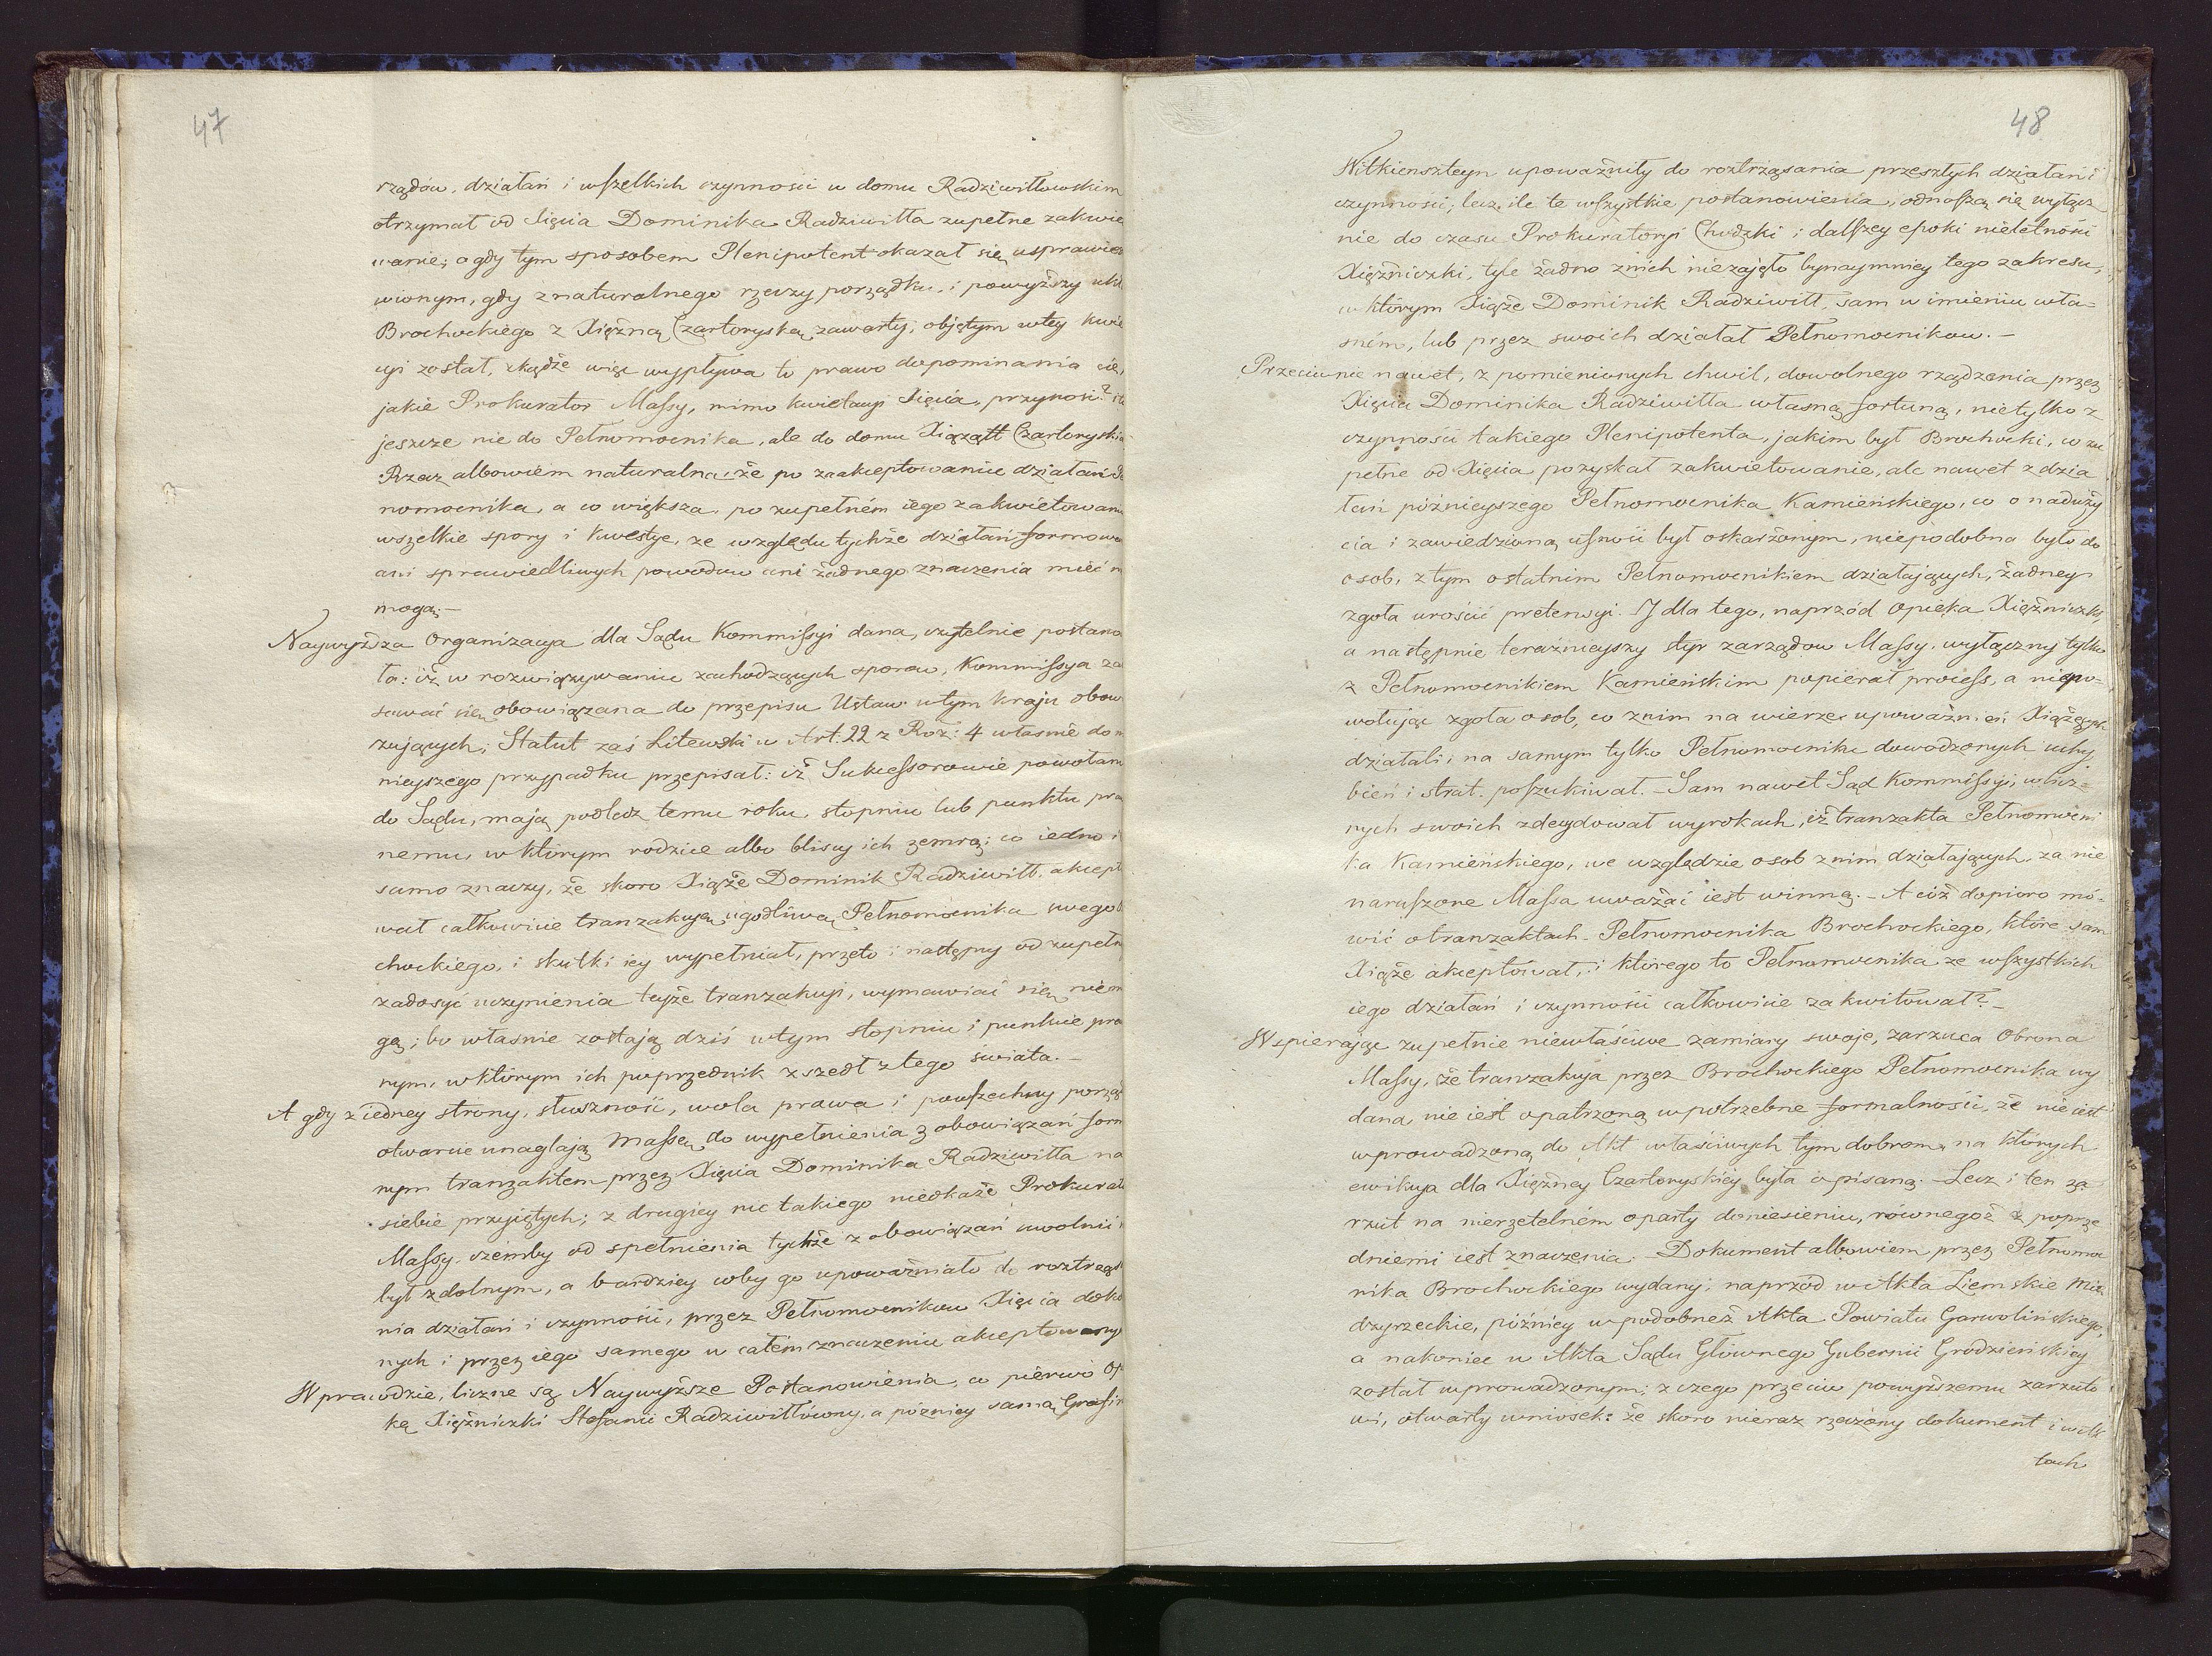 47
rządów, działań i wszelkich czynności w domu Radziwiłłowskim
otrzymał od Xięcia Dominika Radziwiłła zupełne zakwie
wanie; a gdy tym sposobem Plenipotent okazał się usprawied
wionym, gdy z naturalnego rzeczy porządku, i powyższy ukł
Brochockiego z Xiężną Czartoryską zawarty, objętym w tey kwie
cyi został, zkądże więc wypływa to prawo dopominania się,
jakie Prokurator Massy, mimo kwietacyi Xięcia, przynosi?
jeszcze nie do Pełnomocnika, ale do domu Xiążątt Czartoryski
Rzecz albowiem naturalna: że po zaakceptowaniu działań Peł
nomocnika, a co większa, po zupełném iego zakwietowaniu
wszelkie spory i kwestye, ze względu tychże działań formowa
ani sprawiedliwych powodów ani żadnego znaczenia mieć n
mogą.—
Naywyższa Organizacya dla Sądu Kommissyi dana, czytelnie postano
ła: iż w rozwiązywaniu zachodzących sporów, Kommissya za
sować się obowiązana do przepisu Ustaw w tym kraju obow
zujących; Statut zaś Litewski w Art. 22 z Roz: 4 własnie do n
nieyszego przypadku przepisał: iż Sukcessorowie powołani
do Sądu, mają podledz temu roku, stopniu lub punktu pra
nemu, w którym rodzice albo bliscy ich zemrą; co iedno i
samo znaczy, że skoro Xiąże Dominik Radziwiłł, akcepto
wał całkowicie tranzakcyą ugodliwą Pełnomocnika swego
chockiego, i skutki iey wypełniał, przeto i następcy od zupełn
zadosyć uczynienia teyże tranzakcyi, wymawiać się niem
gą; bo własnie zostają dziś w tym stopniu i punkcie pra
nym, w którym ich poprzednik z szedł z tego świata.—
A gdy z iedney strony, słuszność, wola prawa i powszechny porząd
otwarcie unaglają Massę do wypełnienia zobowiązań form
nym tranzaktem przez Xięcia Dominika Radziwiłła na
siebie przyiętych; z drugiey nic takiego nieokaże Prokurato
Massy, czémby od spełnienia tychże zobowiązań uwolnić
był zdolnym, a bardziey coby go upoważniało do roztrząsa
nia działań i czynności, przez Pełnomocników Xięcia doko
nych i przez iego samego w całém znaczeniu akceptowany
Wprawdzie, liczne są Naywyższe Postanowienia, co piérwo Op
kę Xiężniczki Stefanii Radziwiłłówny, a pózniey samą Grafin
48
Witkiensteyn upoważniły do roztrząsania przeszłych działań i
czynnosci; lecz ile te wszystkie postanowienia, odnoszą się wyłącz
nie do czasu Prokuratoryi Chodzki i dalszey epoki nieletności
Xiężniczki, tyle żadno z nich niezajęło bynaymniey tego zakresu,
w którym Xiąże Dominik Radziwiłł, sam w imieniu wła-
sném, lub przez swoich działał Pełnomocników.—
Przeciwnie nawet, z pomienionych chwil, dowolnego rządzenia przez
Xięcia Dominika Radziwiłła własną fortuną, nietylko z
czynności takiego Plenipotenta, jakim był Brochocki, co zu
pełne od Xięcia pozyskał zakwietowanie, ale nawet z dzia
łań późnieyszego Pełnomocnika Kamieńskiego, co o naduży
cia i zawiedzioną ufność był oskarżonym, niepodobna było do
osob, z tym ostatnim Pełnomocnikiem działających, żadney
zgoła urościć pretensyi. I dla tego, naprzód Opieka Xiężniczki,
a następnie teraźnieyszy styr zarządow Massy, wyłączny tylko
z Pełnomocnikiem Kamieńskim popierał process, a niepo-
wołując zgoła osob, co z nim na wierze upoważnień Xiążęcych
działali; na samym tylko Pełnomocniku dowodzonych uchy
bień i strat poszukiwał.— Sam nawet Sąd Kommissyi, w licz-
nych swoich zdecydował wyrokach, iż tranzakta Pełnomocni
ka Kamieńskiego, we względzie osob z nim działających, za nie
naruszone Massa uważać iest winną.— A cóż dopiero mó-
wić o tranzaktach Pełnomocnika Brochockiego, które sam
Xiąże akceptował, i którego to Pełnomocnika ze wszystkich
iego działań i czynności całkowicie zakwitował?—
Wspierając zupełnie niewłaściwe zamiary swoje, zarzuca Obrona
Massy, że tranzakcya przez Brochockiego Pełnomocnika wy
dana, nie iest opatrzoną w potrzebne formalności, że nie iest
wprowadzoną do Akt właściwych tym dobrom, na których
ewikcya dla Xiężney Czartoryskiéy była opisaną.— Lecz i ten za
rzut na nierzetelném oparty doniesieniu, równegoż z poprze
dniemi iest znaczenia. Dokument albowiem przez Pełnomoc
nika Brochockiego wydany, naprzód w Akta Ziemskie Mię
dzyrzeckie, późniey w podobneż Akta Powiatu Garwolińskiego,
a nakoniec w Akta Sądu Głównego Gubernii Grodzieńskiey
został wprowadzonym; z czego przeciw powyższemu zarzuto
wi, otwarty wniosek: że skoro nieraz rzeczony dokument i w Ak
tach